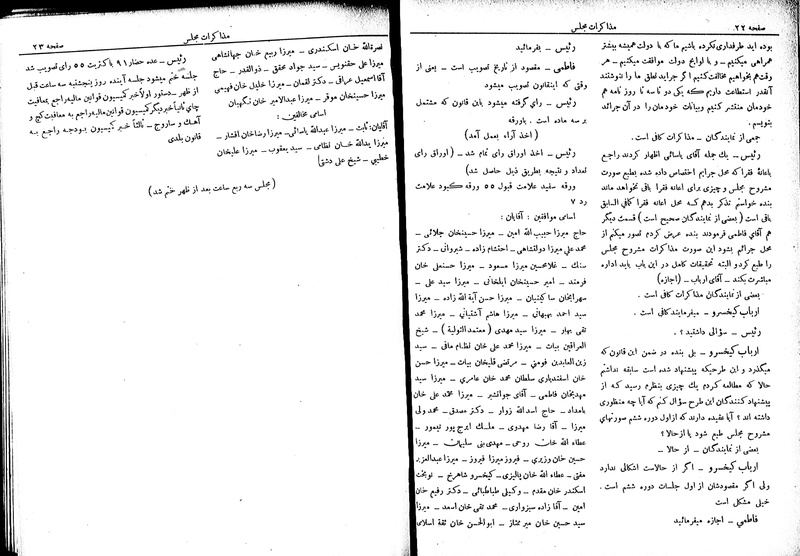 صفحه ۲۲
مذاکرات مجلس
بوده اید طرفداری نکرده باشیم ما که با دولت همیشه بیشتر
همراهی میکنیم _ و با لوایح دولت موافقت میکنیم _ هر
وقت هم بخواهیم مخالفت کنیم اگر جراید نطق ما را ننوشتند
آنقدر استطاعت داریم که یکی دو تا سه تا روز نامه هم
خودمان منتشر کنیم و بیانات خودمان را در آن جرائد
بنویسم .
جمعی از نمایندگان _ مذاکرات کافی است .
رئیس _ یک جمله آقای یاسائی اظهار کردند راجع
باعانهٔ فقرا که محل جرایم اختصاص داده شده بطبع صورت
مشروح مجلس و چیزی برای اعانه فقرا باقی نخواهد ماند
بنده خواستم تذکر بدهم که محل اعانه فقرا کما فی السابق
باقی است ( بعضی از نمایندگان صحیح است ) قسمت دیگر
هم آقای فاطمی فرمودند بنده عرض کردم تصور میکنم از
محل جرائم بشود این صورت مذاکرات مشروح مجلس
را طبع کرد و البته تحقیقات کامل در این باب باید اداره
مباشرت بکند _ آقای ارباب _ (اجازه)
بعضی از نمایندگان مذاکرات کافی است .
ارباب کیخسرو _ میفرمایند کافی است .
رئیس _ سؤالی داشتید ؟ .
ارباب کیخسرو _ بلی بنده در ضمن این قانون که
میگذرد و این طرحیکه پیشنهاد شده است سابقه نداشتم
حالا که مطالعه کردم یک چیزی بنظرم رسید که از
پیشنهاد کنندگان این طرح سؤال کنم که آیا چه منظوری
داشته اند ؟ آیا عقیده دارند که از اول دوره ششم صورتهای
مشروح مجلس طبع شود یا از حالا ؟
بعضی از نمایندگان _ از حالا _
ارباب کیخسرو _ اگر از حالاست اشکالی ندارد
ولی اگر مقصودشان از اول جلسات دوره ششم است .
خیلی مشکل است
فاطمی _ اجازه میفرمائید
رئیس _ بفرمائید
فاطمی _ مقصود از تاریخ تصویب است _ یعنی از
وقتی که اینقانون تصویب میشود
رئیس _ رأی گرفته میشود باین قانون که مشتمل
بر سه ماده است . باورقه
( اخذ آراء بعمل آمد )
رئیس _ اخذ اوراق رأی تمام شد _ ( اوراق رأی
تعداد و نتیجه بطریق ذیل حاصل شد )
ورقه سفید علامت قبول ۵۵ ورقه کبود علامت
رد ۷
اسامی موافقین : آقایان :
حاج میرزا حبیب الله امین _ میرزا حسینخان جلائی _
محمد علی میرزا دولتشاهی _ احتشام زاده _ شیروانی _ دکتر
سنک _ غلامحسین میرزا مسعود _ میرزا حسنعلی خان
فرمند _ امیر حسینخان ایلخانی _ میرزا سید علی _
سهرابخان ساکینیان _ میرزا حسن آیة الله زاده _ میرزا
سید احمد بهبهانی _ میرزا هاشم آشتیانی _ میرزا محمد
تقی بهار _ میرزا سید مهدی ( معتمد التولیة ) _ شیخ
العراقین بیات _ میرزا محمد علی خان نظام مافی _ سید
زین العابدین فومنی _ مرتضی قلیخان بیات _ میرزا حسن
خان اسفندیاری سلطان محمد خان عامری _ میرزا سید
مهدیخان فاطمی _ آقای جوانشیر _ میرزا محمد علی خان
بامداد _ حاج اسد الله زوار _ دکتر مصدق _ محمد ولی
میرزا _ آقا رضا مهدوی _ ملک ایرج پور تیمور _
عطاء الله خان روحی _ مهدی بنی سلیمان _ میرزا
حسین خان وزیری _ فیروز میرزا فیروز _ میرزا عبدالعزیز
مفتی _ عطاء الله خان پالیزی _ کیخسرو شاهرخ _ نوبخت
اسکندر خان مقدم _ وکیلی طباطبائی _ دکتر رفیع خان
امین _ آقا زاده سبزواری _ محمد تقی خان اسعد _ میرزا
سید حسین خان میر ممتاز _ ابوالحسن خان ثقة اسلامی
مذاکرات مجلس
صفحه ۲۳
نصرالله خان اسکندری _ میرزا ربیع خان جهانشاهی
میرزا علی حقنویس _ سید جواد محقق _ ذوالقدر _ حاج
آقا اسمعیل عراقی _ دکتر لقمان _ میرزا خلیل خان فهیمی
میرزا حسینخان موقر _ میرزا عبدالامیر خان نگهبان
اسامی مخالفین :
آقایان: ثابت _ میرزا عبدالله یاسائی _ میرزا رضاخان افشار _
میرزا یدالله خان نظامی _ سید یعقوب _ میرزا علیخان
خطیبی _ شیخ علی دشتی
رئیس _ عده حضار ۹۱ با کثریت ۵۵ رای تصویب شد
جلسه ختم میشود جلسه آینده روز پنجشنبه سه ساعت قبل
از ظهر _ دستور اولا خبر کمیسیون قوانین مالیه راجع بمعافیت
چای ثانیا خبر دیگر کمیسیون قوانین مالیه راجع به معافیت گچ و
آهک و ساروج _ ثالثا خبر کمیسیون بودجه راجع به
قانون بلدی
( مجلس سه ربع ساعت بعد از ظهر ختم شد )